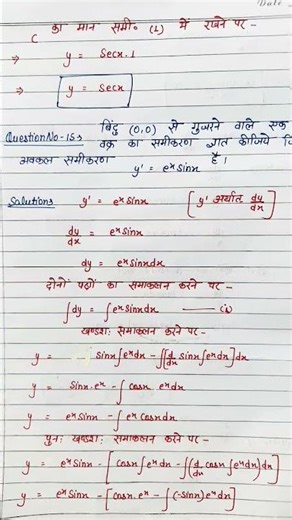 C का मान समी० (1) में रखने पर -
⇒ y = Secx.1
⇒ y = secx
Question No-15⇒ बिंदु (0,0) से गुजरने वाले एक
वक्र का समीकरण ज्ञात कीजिये
अवकल समीकरण y' = e^x sinx है।
Solution⇒ y' = e^x sinx [y' अर्थात dy/dx]
dy/dx = e^x sinx
dy = e^x sinx dx
दोनों पक्षों का समाकलन करने पर -
∫dy = ∫e^x sinx dx —— (i)
खण्डशः समाकलन करने पर -
y = sinx∫e^x dx - ∫[d/dx sinx ∫e^x dx]dx
y = sinx.e^x - ∫cosx e^x dx
y = e^x sinx - ∫e^x cosx dx
पुनः खण्डशः समाकलन करने पर -
y = e^x sinx - [cosx∫e^x dx - ∫(d/dx cosx ∫e^x dx)dx]
y = e^x sinx - [cosx.e^x - ∫(-sinx)e^x dx]